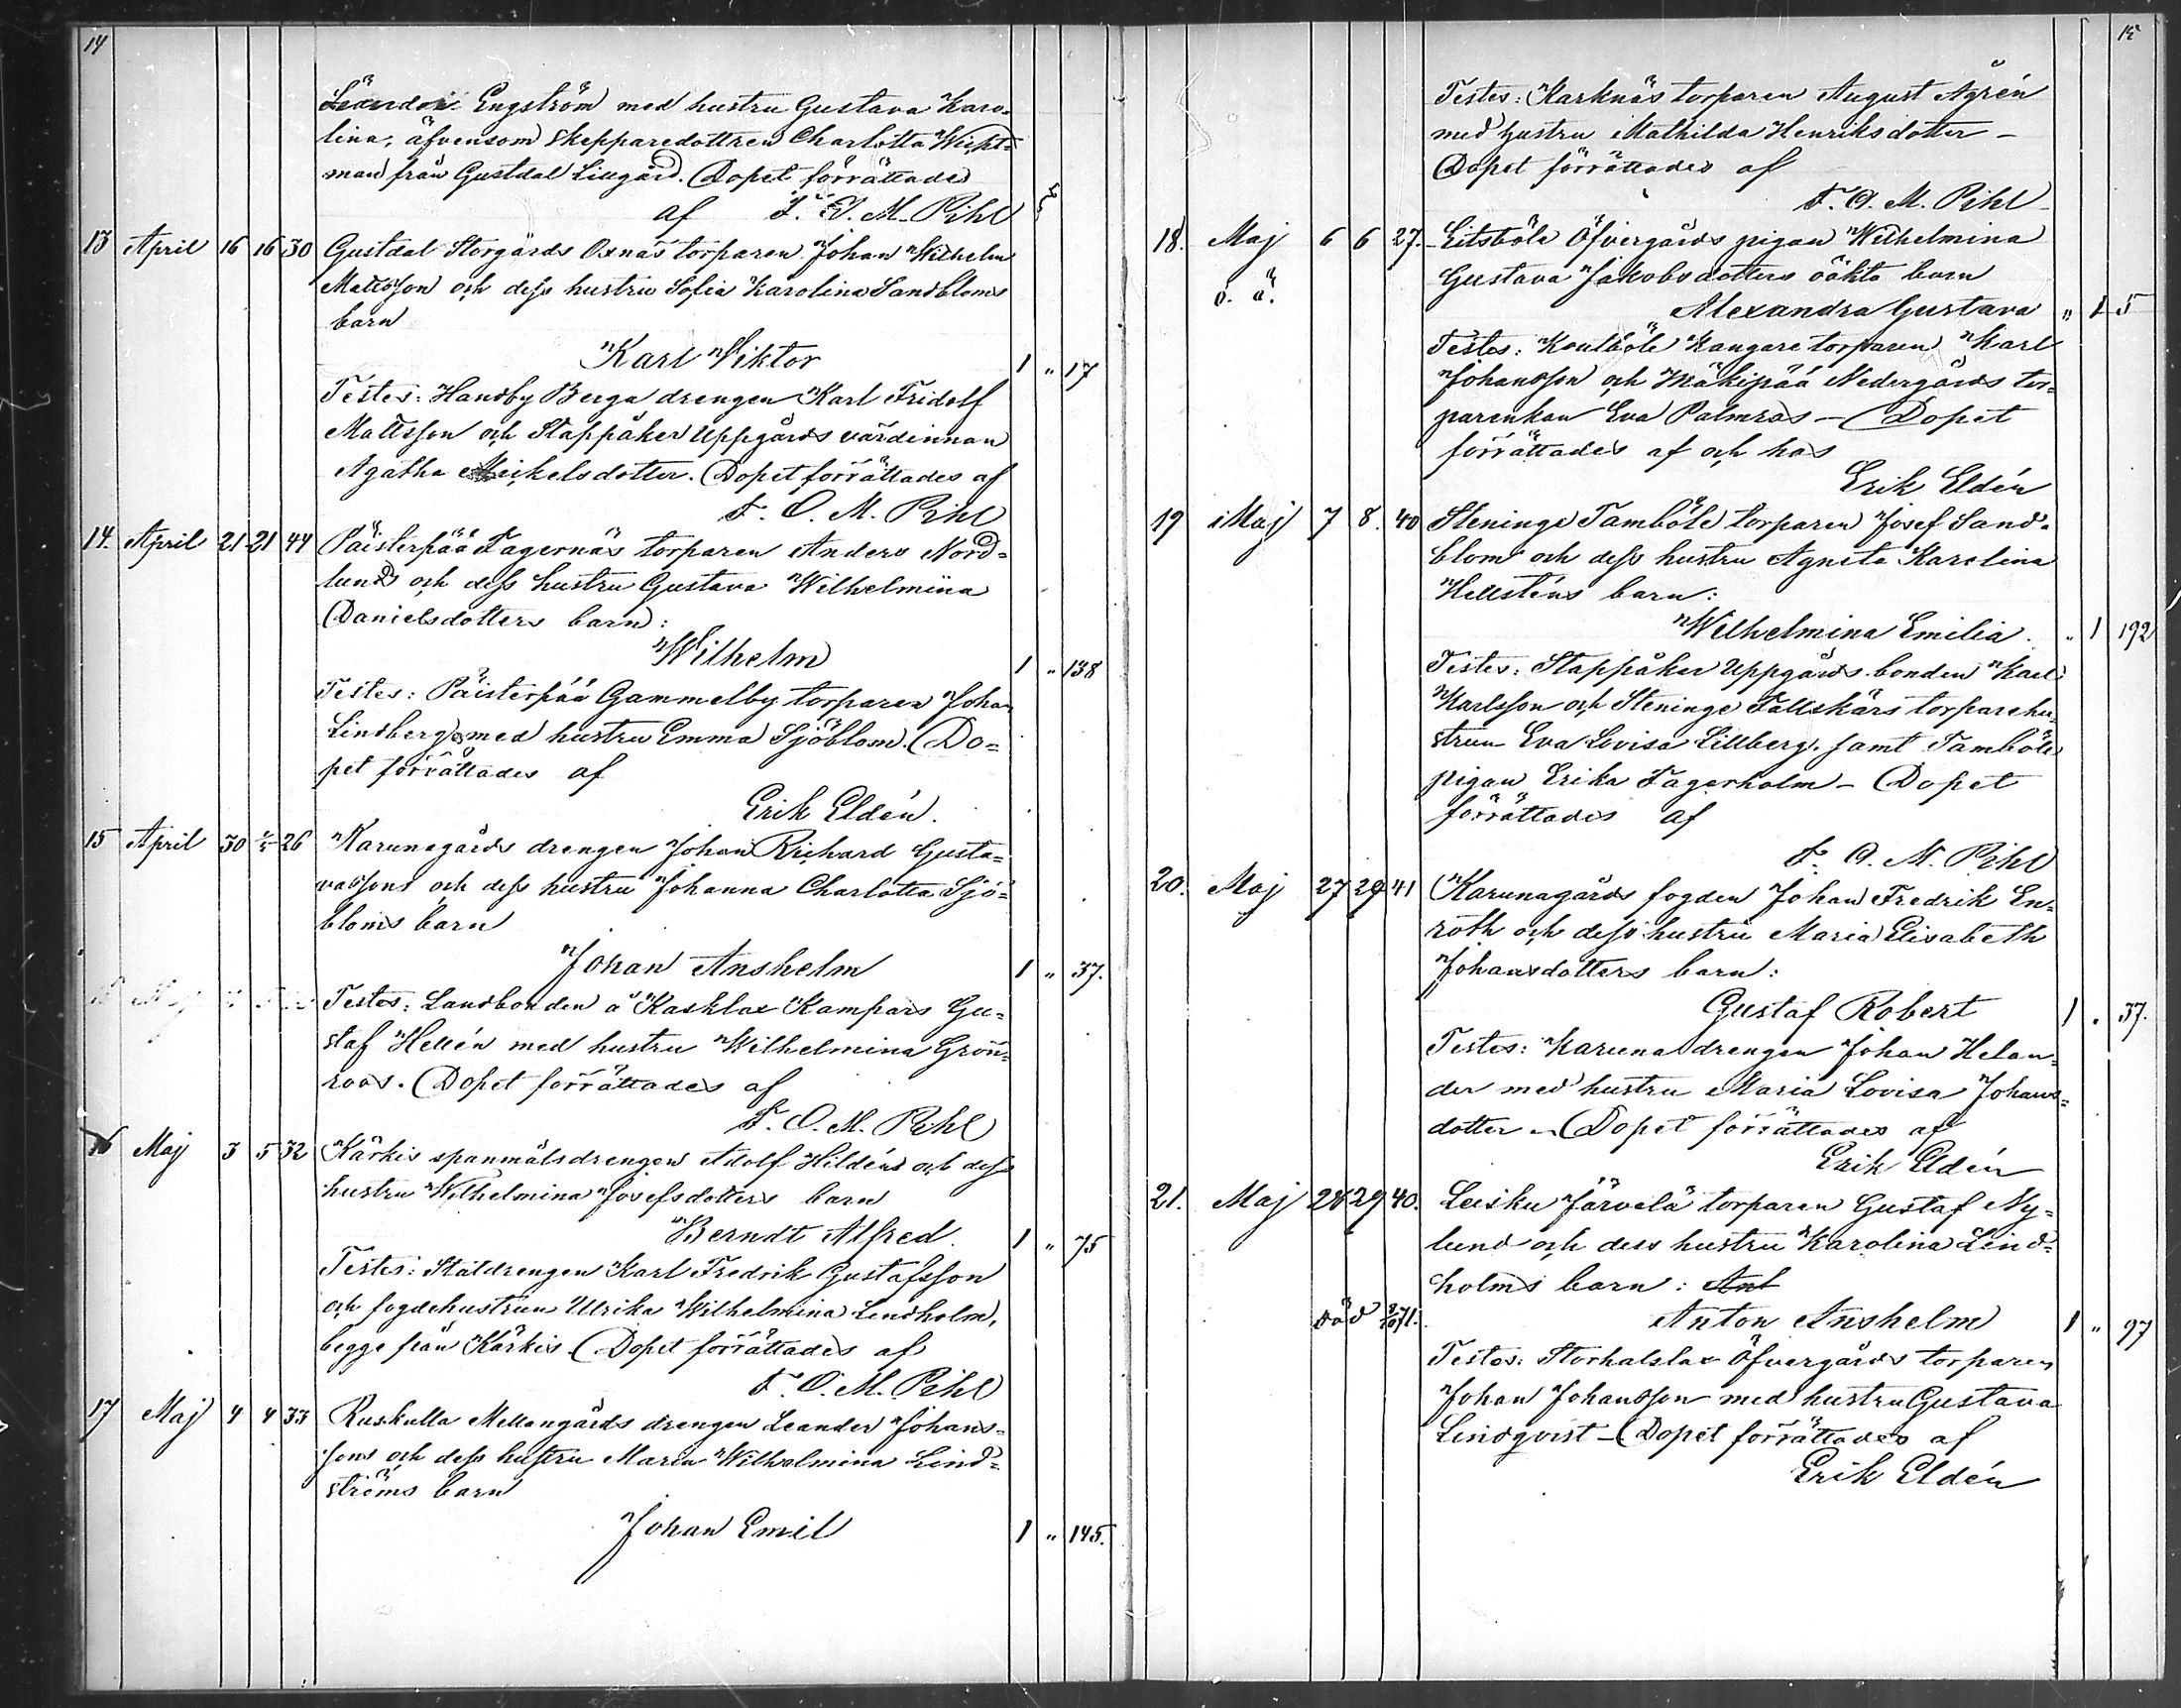 14
Leander Engström med hustru Gustava Karo-
lina, äfvensom skepparedottren Charlotta Wickt-
man från Gustdal Lillgård. Dopet förrättades
af F. O. M. Pihl
13 April 16 16 30 Gustdal Storgårds Oxnäs torparen Johan Wilhelm
Mattsson och dess hustru Sofia Karolina Sandbloms
barn
Karl Viktor 1 " 17
Testes: Handby Berga drengen Karl Fridolf
Mattsson och Stappåker Uppgårds värdinnan
Agatha Mickelsdotter. Dopet förrättades af
F. O. M. Pihl
14. April 21 21 44 Päisterpää Fagernäs torparen Anders Nord-
lunds och dess hustru Gustava Wilhelmina
Danielsdotters barn:
Wilhelm 1 " 138
Testes: Päisterpää Gammelby torparen Johan
Lindberg med hustru Emma Sjöblom. Do-
pet förrättades af
Erik Eldén.
15 April 30 26 Karunagårds drengen Johan Richard Gusta-
vassons och dess hustru Johanna Charlotta Sjö-
bloms barn
Johan Anshelm 1 " 37.
Testes: Landbonden å Kasklax Kampars Gu-
staf Hellén med hustru Wilhelmina Grön-
roos. Dopet förrättades af
F. O. M. Pihl
16 Maj 3 5 32 Kärkis spanmålsdrengen Adolf Hildéns och dess
hustru Wilhelmina Josefsdotters barn
Berndt Alfred. 1 " 75
Testes: Statdrengen Karl Fredrik Gustafsson
och fogdehustrun Ulrika Wilhelmina Lindholm,
begge från Kärkis. Dopet förrättades af
F. O. M. Pihl
17 Maj 4 4 33 Ruskulla Mellangårds drengen Leander Johans-
sons och dess hustru Maria Wilhelmina Lind-
ströms barn
Johan Emil 1 " 145.
15
Testes: Karknäs torparen August Ågrén
med hustru Mathilda Henriksdotter –
Dopet förrättades af
F. O. M. Pihl
18. Maj 6 6 27. Eitsböle Öfvergårds pigan Wilhelmina
Gustava Jakobsdotters oäkta barn
o. ä.
Alexandra Gustava " 1 5
Testes: Kontböle Kangare torparen Karl
Johansson och Mäkipää Nedergårds tor-
parenkan Eva Palmros – Dopet
förrättades af och hos
Erik Eldén
19 Maj 7 8. 40 Steninge Tamböle torparen Josef Sand-
blom och dess hustru Agneta Karolina
Hellsténs barn:
Wilhelmina Emilia. " 1 192
Testes: Stappåker Uppgårds bonden Karl
Karlsson och Steninge Fallskärs torparehu-
strun Eva Lovisa Lillberg, samt Tamböle
pigan Erika Fagerholm – Dopet
förrättades af
F. O. M. Pihl
20. Maj 27 29 41 Karunagårds fogden Johan Fredrik En-
roth och dess hustru Maria Elisabeth
Johansdotters barn:
Gustaf Robert 1 " 37.
Testes: Karuna drengen Johan Helan-
der med hustru Maria Lovisa Johans-
dotter – Dopet förrättades af
Erik Eldén
21. Maj 28 29 40. Leisku Järvelä torparen Gustaf Ny-
lund och dess hustru Karolina Lind-
holms barn: Ant
död 71. Anton Anshelm 1 " 97
Testes: Storhalslax Öfvergårds torparen
Johan Johansson med hustru Gustava
Lindqvist – Dopet förrättades af
Erik Eldén